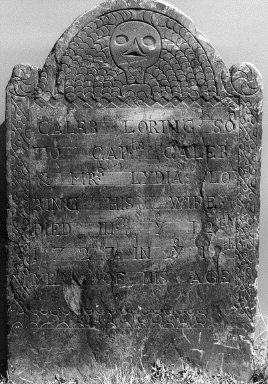 CALEB LORING SO
TO CAPᵗ CALEB
& Mʳˢ LYDIA LO
RING HIS WIFE
DIED 12
17 IN Yᵉ
YEAR OF HIS AGE